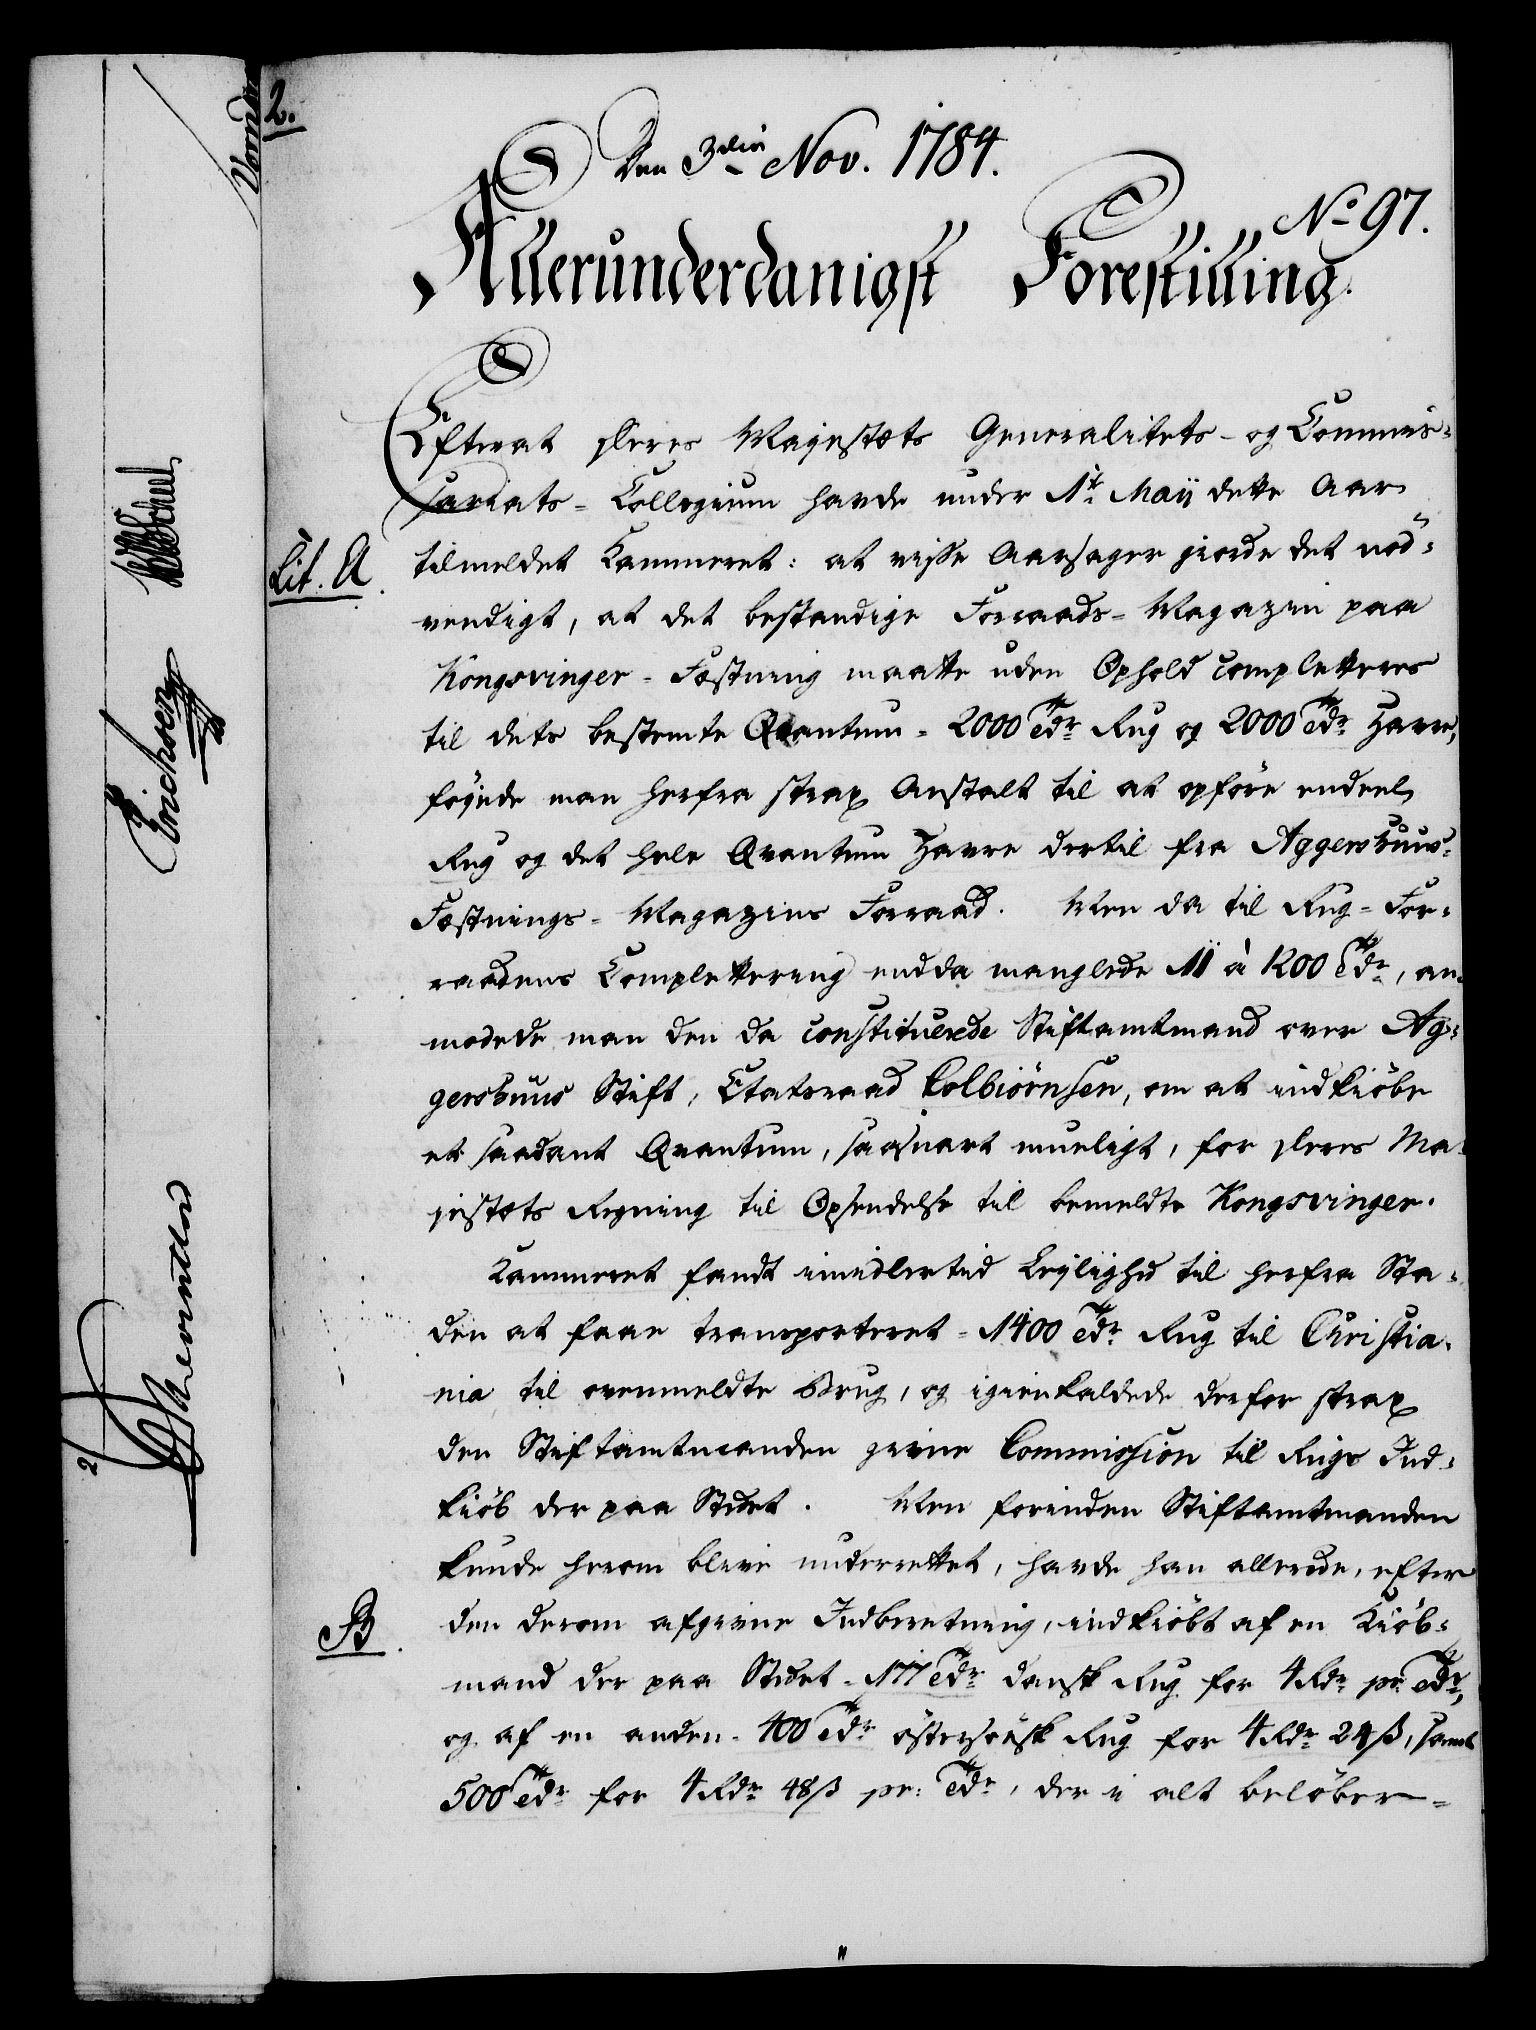 2.
Den 3die Nov. 1784.
No 97.
Allerunderdanigst Forestilling.
Efterat Deres Majestæts Generalitets- og Commis-
sariats- Collegium havde under 1te Maij dette Aar
Lit. A.
tilmeldet Kammeret: at visse Aarsager giorde det nød-
vendigt, at det bestandige Forraads- Magazin paa
Kongsvinger- Fæstning maatte uden Ophold completteres
til dets bestemte Qvantum- 2000 Tdr Rug og 2000 Tdr Havre,
føyede man herfra strax Anstalt til at opføre endeel
Rug og det hele Qvantum Havre dertil fra Aggershuus-
Fæstnings- Magazins Forraad. Men da til Rug- For-
raadens Complettering endda manglede 11 à 1200 Tdr, an-
modede man den da constituerede Stiftamtmand over Ag-
gershuus Stift, Etatsraad Colbiørnsen, om at indkiøbe
et saadant Qvantum, saasnart mueligt, for Deres Ma-
jestæts Regning til Opsendelse til bemeldte Kongsvinger.
Kammeret fandt imidlertid Leylighed til herfra Sta-
den at faae transporteret- 1400 Tdr Rug til Christia-
nia til ovenmeldte Brug, og igienkaldede derfor strax
den Stiftamtmanden givne Commission til Rugs Ind-
kiøb der paa Stedet. Men forinden Stiftamtmanden
kunde herom blive underrettet, havde han allerede, efter
B.
den derom afgivne Indberetning, indkiøbt af en Kiøb-
mand der paa Stedet- 177 Tdr dansk Rug for 4 Rdr pr Tdr,
og af en anden- 400 Tdr østersøisk Rug for 4 Rdr 24 ß, samt
500 Tdr for 4 Rdr 48 ß pr: Tdr, der i alt beløber-
Erichsen
2